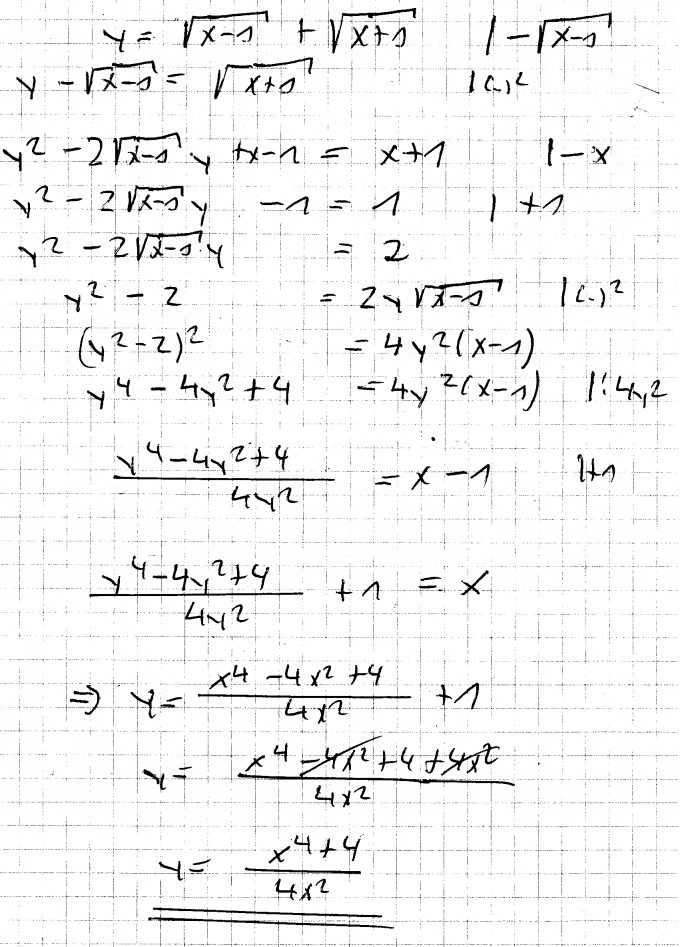 y = √(x-1) + √(x+1) | -√(x-1)
y - √(x-1) = √(x+1) | (..)²
y² - 2√(x-1) y + x - 1 = x+1 | -x
y² - 2√(x-1) y - 1 = 1 | +1
y² - 2√(x-1) y = 2
y² - 2 = 2y√(x-1) | (..)²
(y² - 2)² = 4y²(x-1)
y⁴ - 4y² + 4 = 4y²(x-1) | : 4y²
(y⁴ - 4y² + 4)/(4y²) = x - 1 | +1
(y⁴ - 4y² + 4)/(4y²) + 1 = x
⇒ y = (x⁴ - 4x² + 4)/(4x²) + 1
y = (x⁴ - 4x² + 4 + 4x²)/(4x²)
y = (x⁴ + 4)/(4x²)